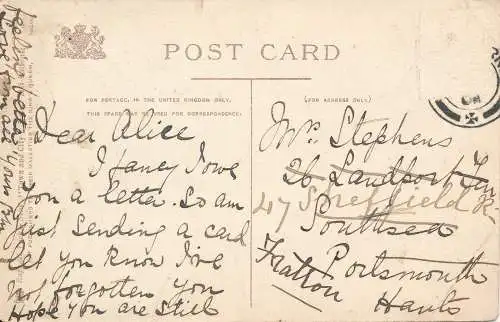 POST CARD
FOR POSTAGE, IN THE UNITED KINGDOM ONLY,
THIS SPACE MAY BE USED FOR CORRESPONDENCE.
(FOR ADDRESS ONLY)
Dear Alice
I fancy I owe
you a letter. So am
just sending a card
let you know I've
not forgotten you
Hope you are still
feeling better
love from all yours
Mrs Stephens
26 Landport
47 Sheffield R
Southsea
Fratton Portsmouth
Hants